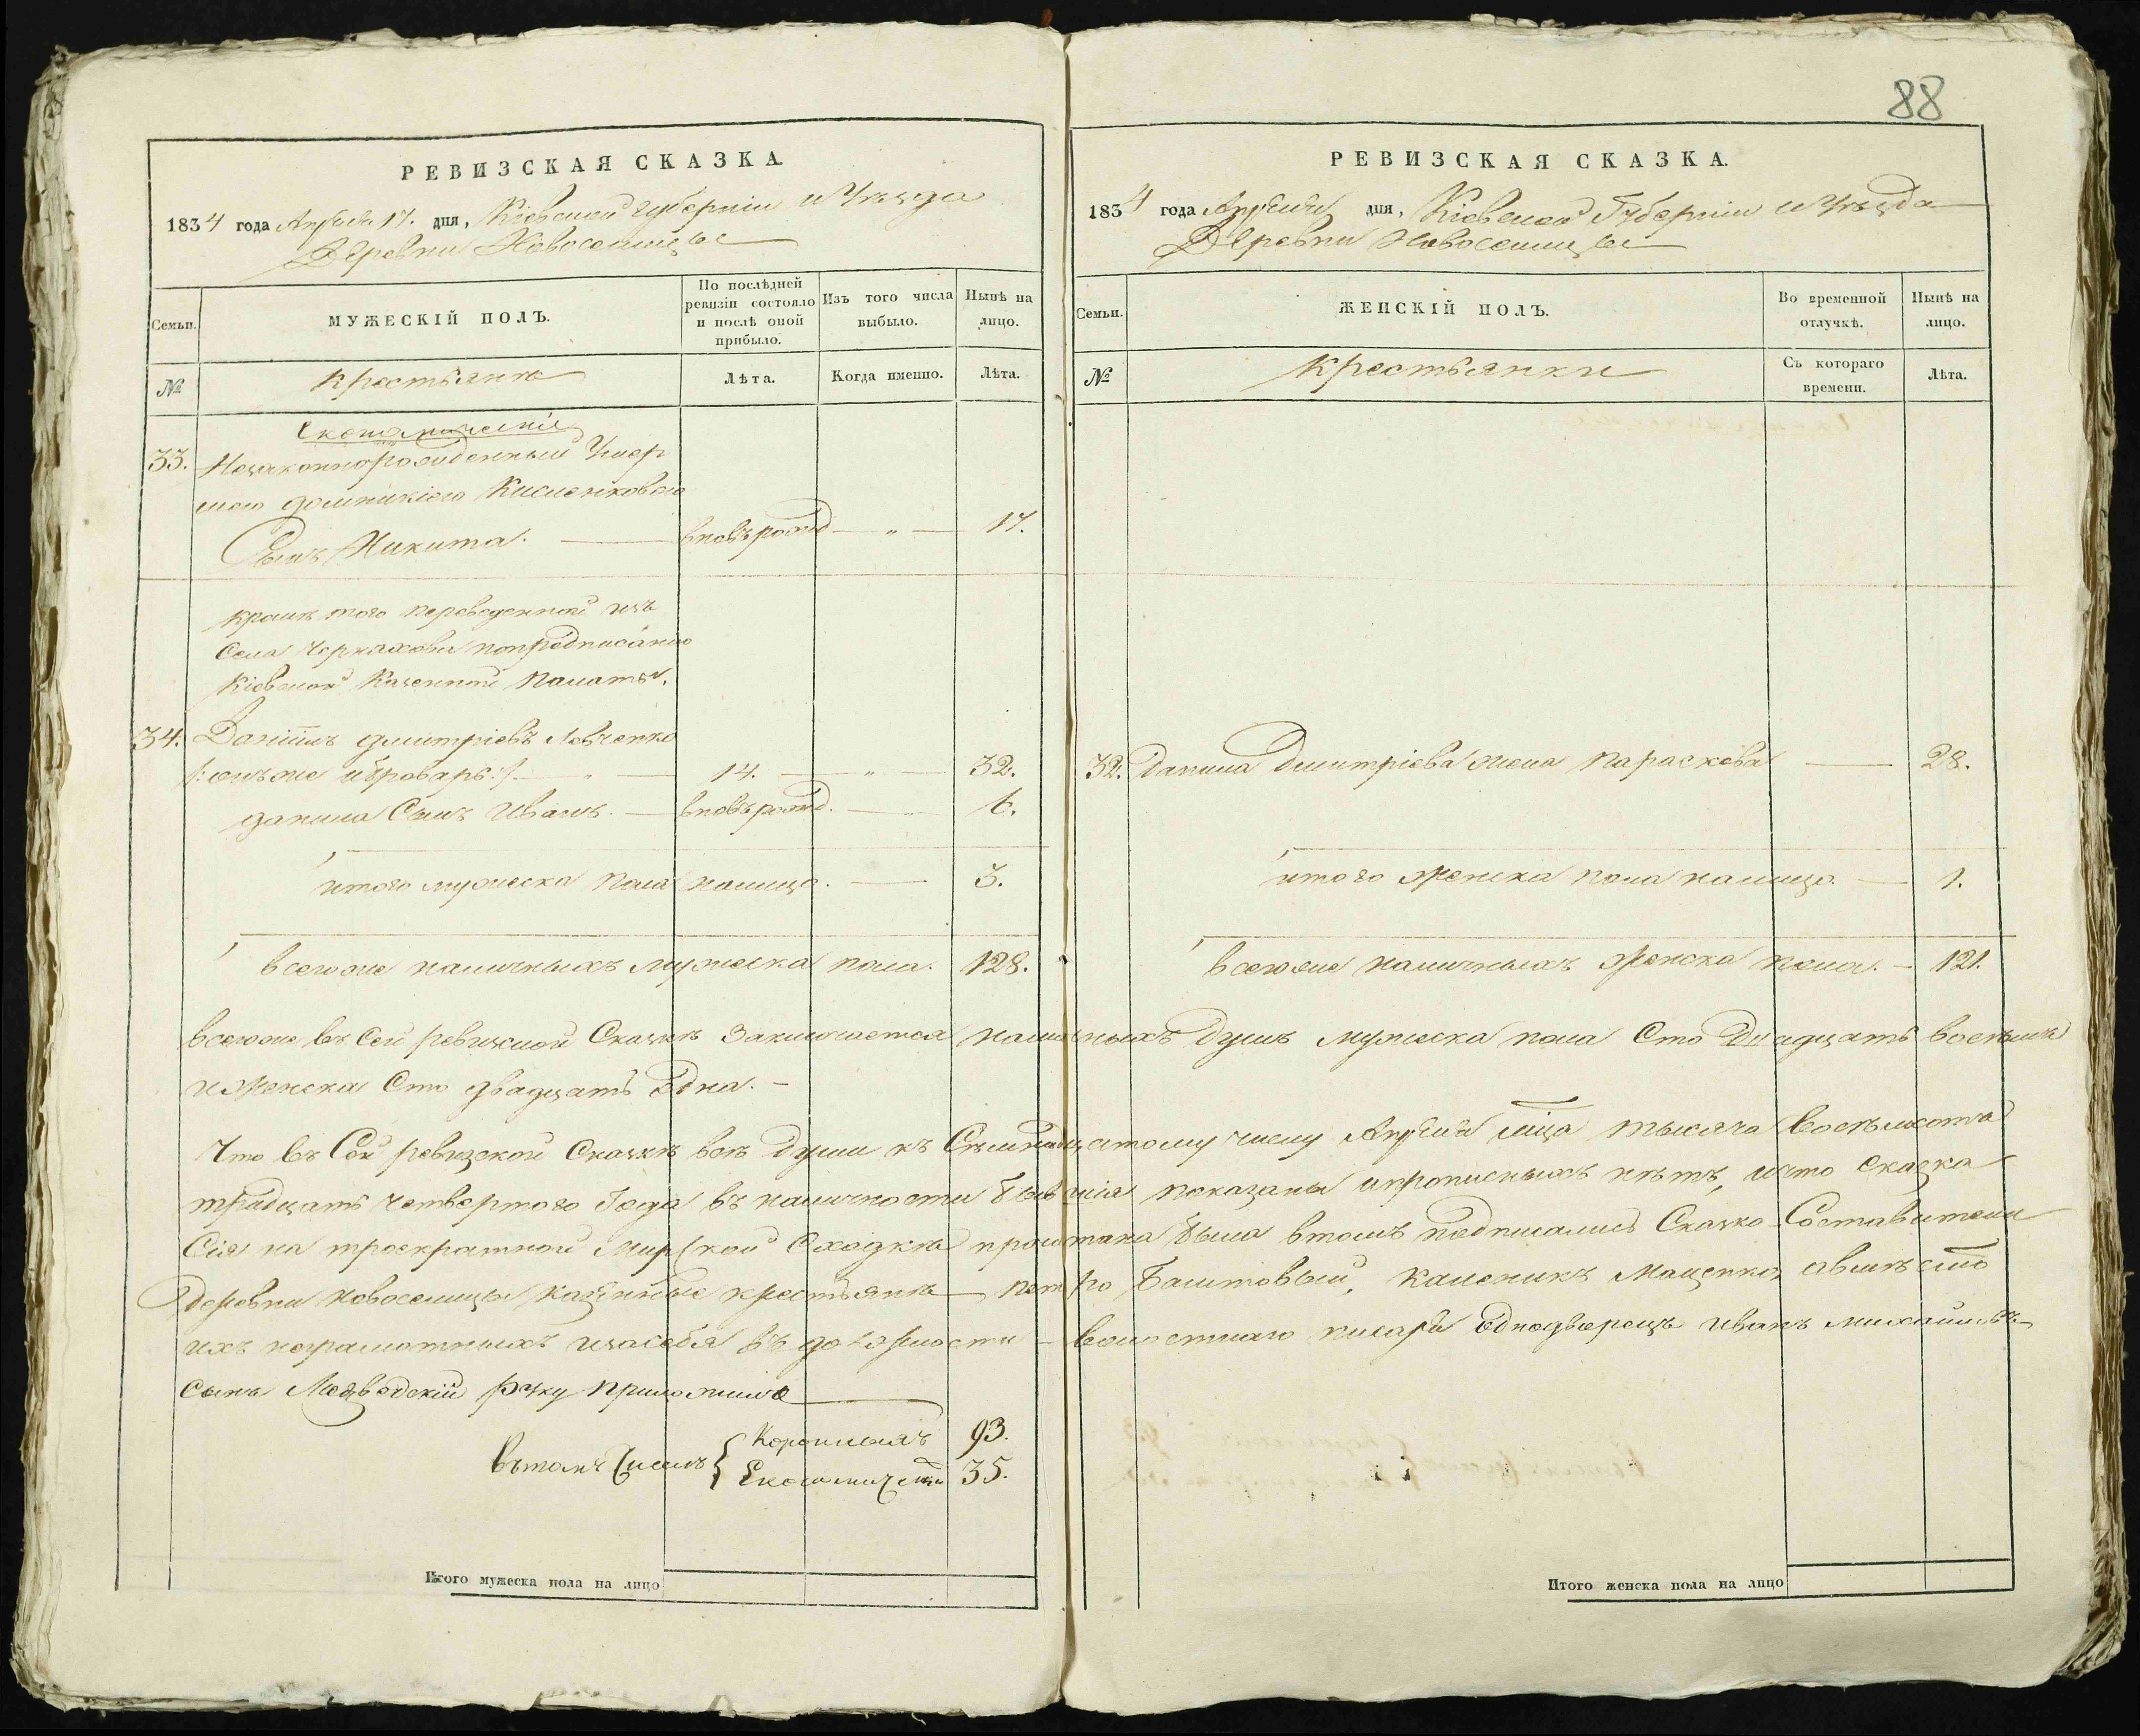 88
РЕВИЗСКАЯ СКАЗКА
1834 года Апреля 17. дня, Кіевской губерніи и Уезда
Деревни Новоселицы
Семьи.
МУЖЕСКІЙ ПОЛЪ.
По послѣдней ревизіи состояло и послѣ оной прибыло.
Изъ того числа выбыло.
Нынѣ на лицо.
№
Крестьяне
Лѣта.
Когда именно.
Лѣта.
Економические
33. Незаконнорожденный Умер
шого Кисленкового
Сынъ Никита. — вновь рожд — „ — 17.
кроме того переведенной изъ
Села Черняхова по предписанию
Кіевской Казенной Палаты.
34. Даніилъ Дмитріевъ Левченко
/: онъ же и броварь :/ — „ — 14. — „ — 32.
Данила Сынъ Иванъ. — вновь рожд. — „ — 6.
итого мужеска пола налицо. — 3.
всего же наличныхъ мужеска пола. 128.
РЕВИЗСКАЯ СКАЗКА.
1834 года Апреля дня, Кіевской Губерніи и Уезда
Деревни Новоселицы
Семьи.
ЖЕНСКІЙ ПОЛЪ.
Во временной отлучкѣ.
Нынѣ на лицо.
№
Крестьянки
Съ котораго времени.
Лѣта.
32. Данила Дмитріева жена Параскева — 28.
итого женска пола налицо. — 1.
всего же наличныхъ женска пола. — 121.
всего же въ сей ревизской Сказке Заключается наличныхъ душъ мужеска пола Сто Двадцать восемь
и женска Сто двадцать одна. —
Что въ Сей ревизской Сказке все души къ Семнадцатому числу Апреля мца тысяча восемьсотъ
тридцать четвертого Года въ наличности бывшія показаны и прописныхъ нетъ, и что сказка
Сія на троекратной Мирской Сходке прочтана была в томъ подписались Сказко-Составители
деревни Новоселицы казенные крестьяне — Петро Баштовый, Каленикъ Маценко, а вместо
ихъ неграмотныхъ и за себя въ должности — волостнаго писаря Однодворецъ Иванъ Михайловъ
сынъ Медведскій руку приложилъ
Въ томъ Числе { Коронныхъ 93.
Економическ 35.
Итого мужеска пола на лицо
Итого женска пола на лицо